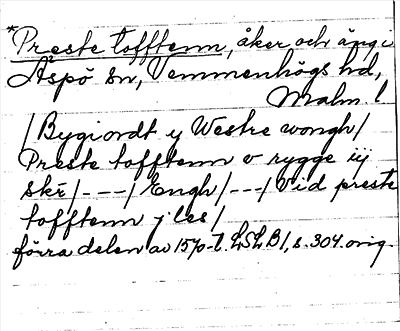 *Preste tofftenn, åker och äng i
Äspö sn, Vemmenhögs hd,
Malm. l
/Bygiordt y Westre wongh/
Preste tofftenn v rygge iij
skr/---/Engh/---/Vid preste
tofftenn j les/
förra delen av 1570-t. LSLB1, s. 304. orig.